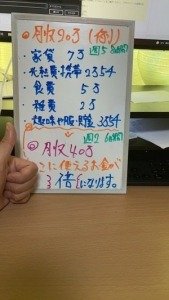 月収20万(例)
週5 8時間
・家賃 7万
・光熱費・携帯 2万5千
・食費 5万
・雑費 2万
・趣味や服・貯金 3万5千
週2 6時間
月収40万
ここに使えるお金が
3倍になります。